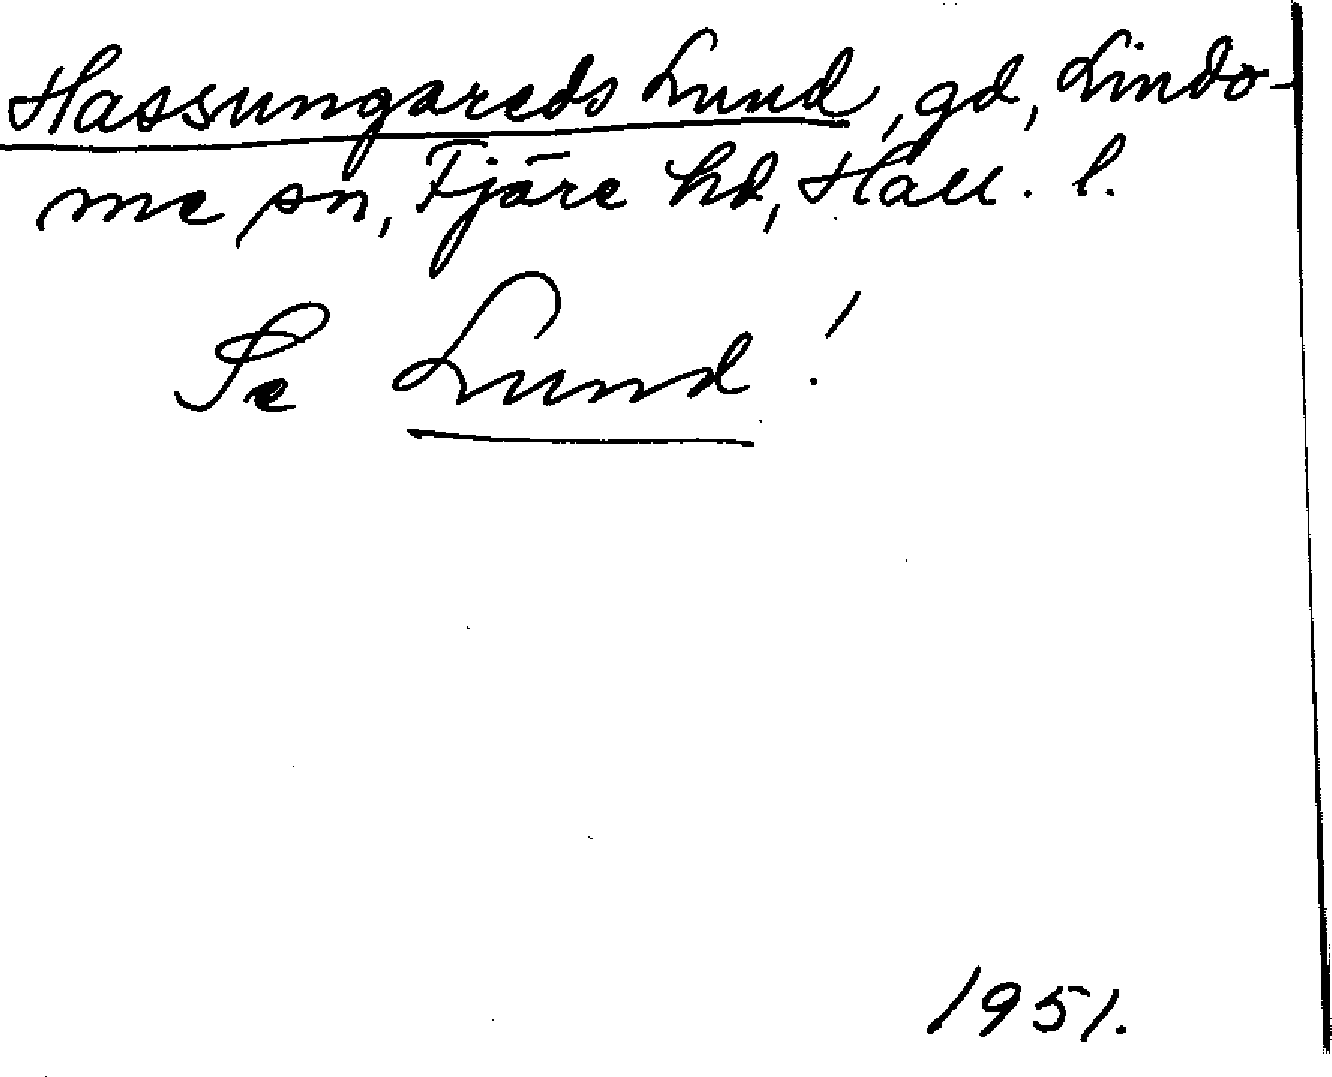 Hassungareds Lund, gd, Lindo-
me sn, Fjäre hd, Hall. l.
Se Lund!
1951.